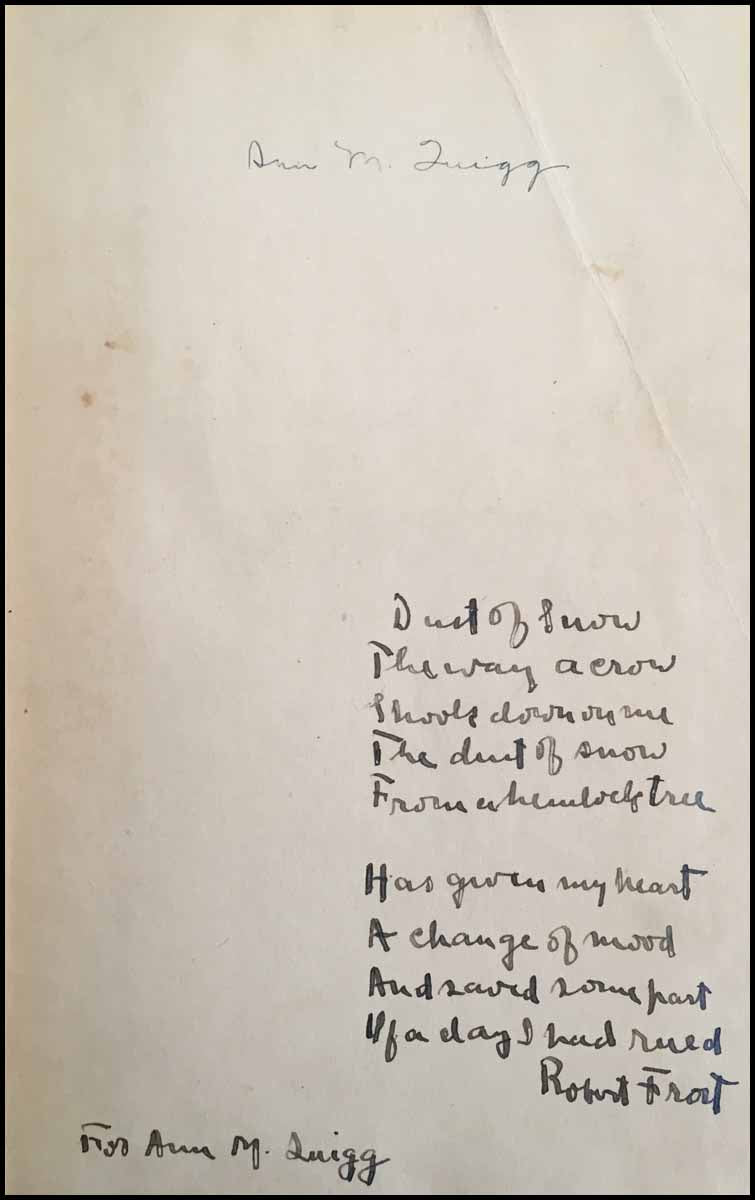 Ann M. Quigg
Dust of Snow
The way a crow
Shook down on me
The dust of snow
From a hemlock tree
Has given my heart
A change of mood
And saved some part
Of a day I had rued
Robert Frost
For Ann M. Quigg